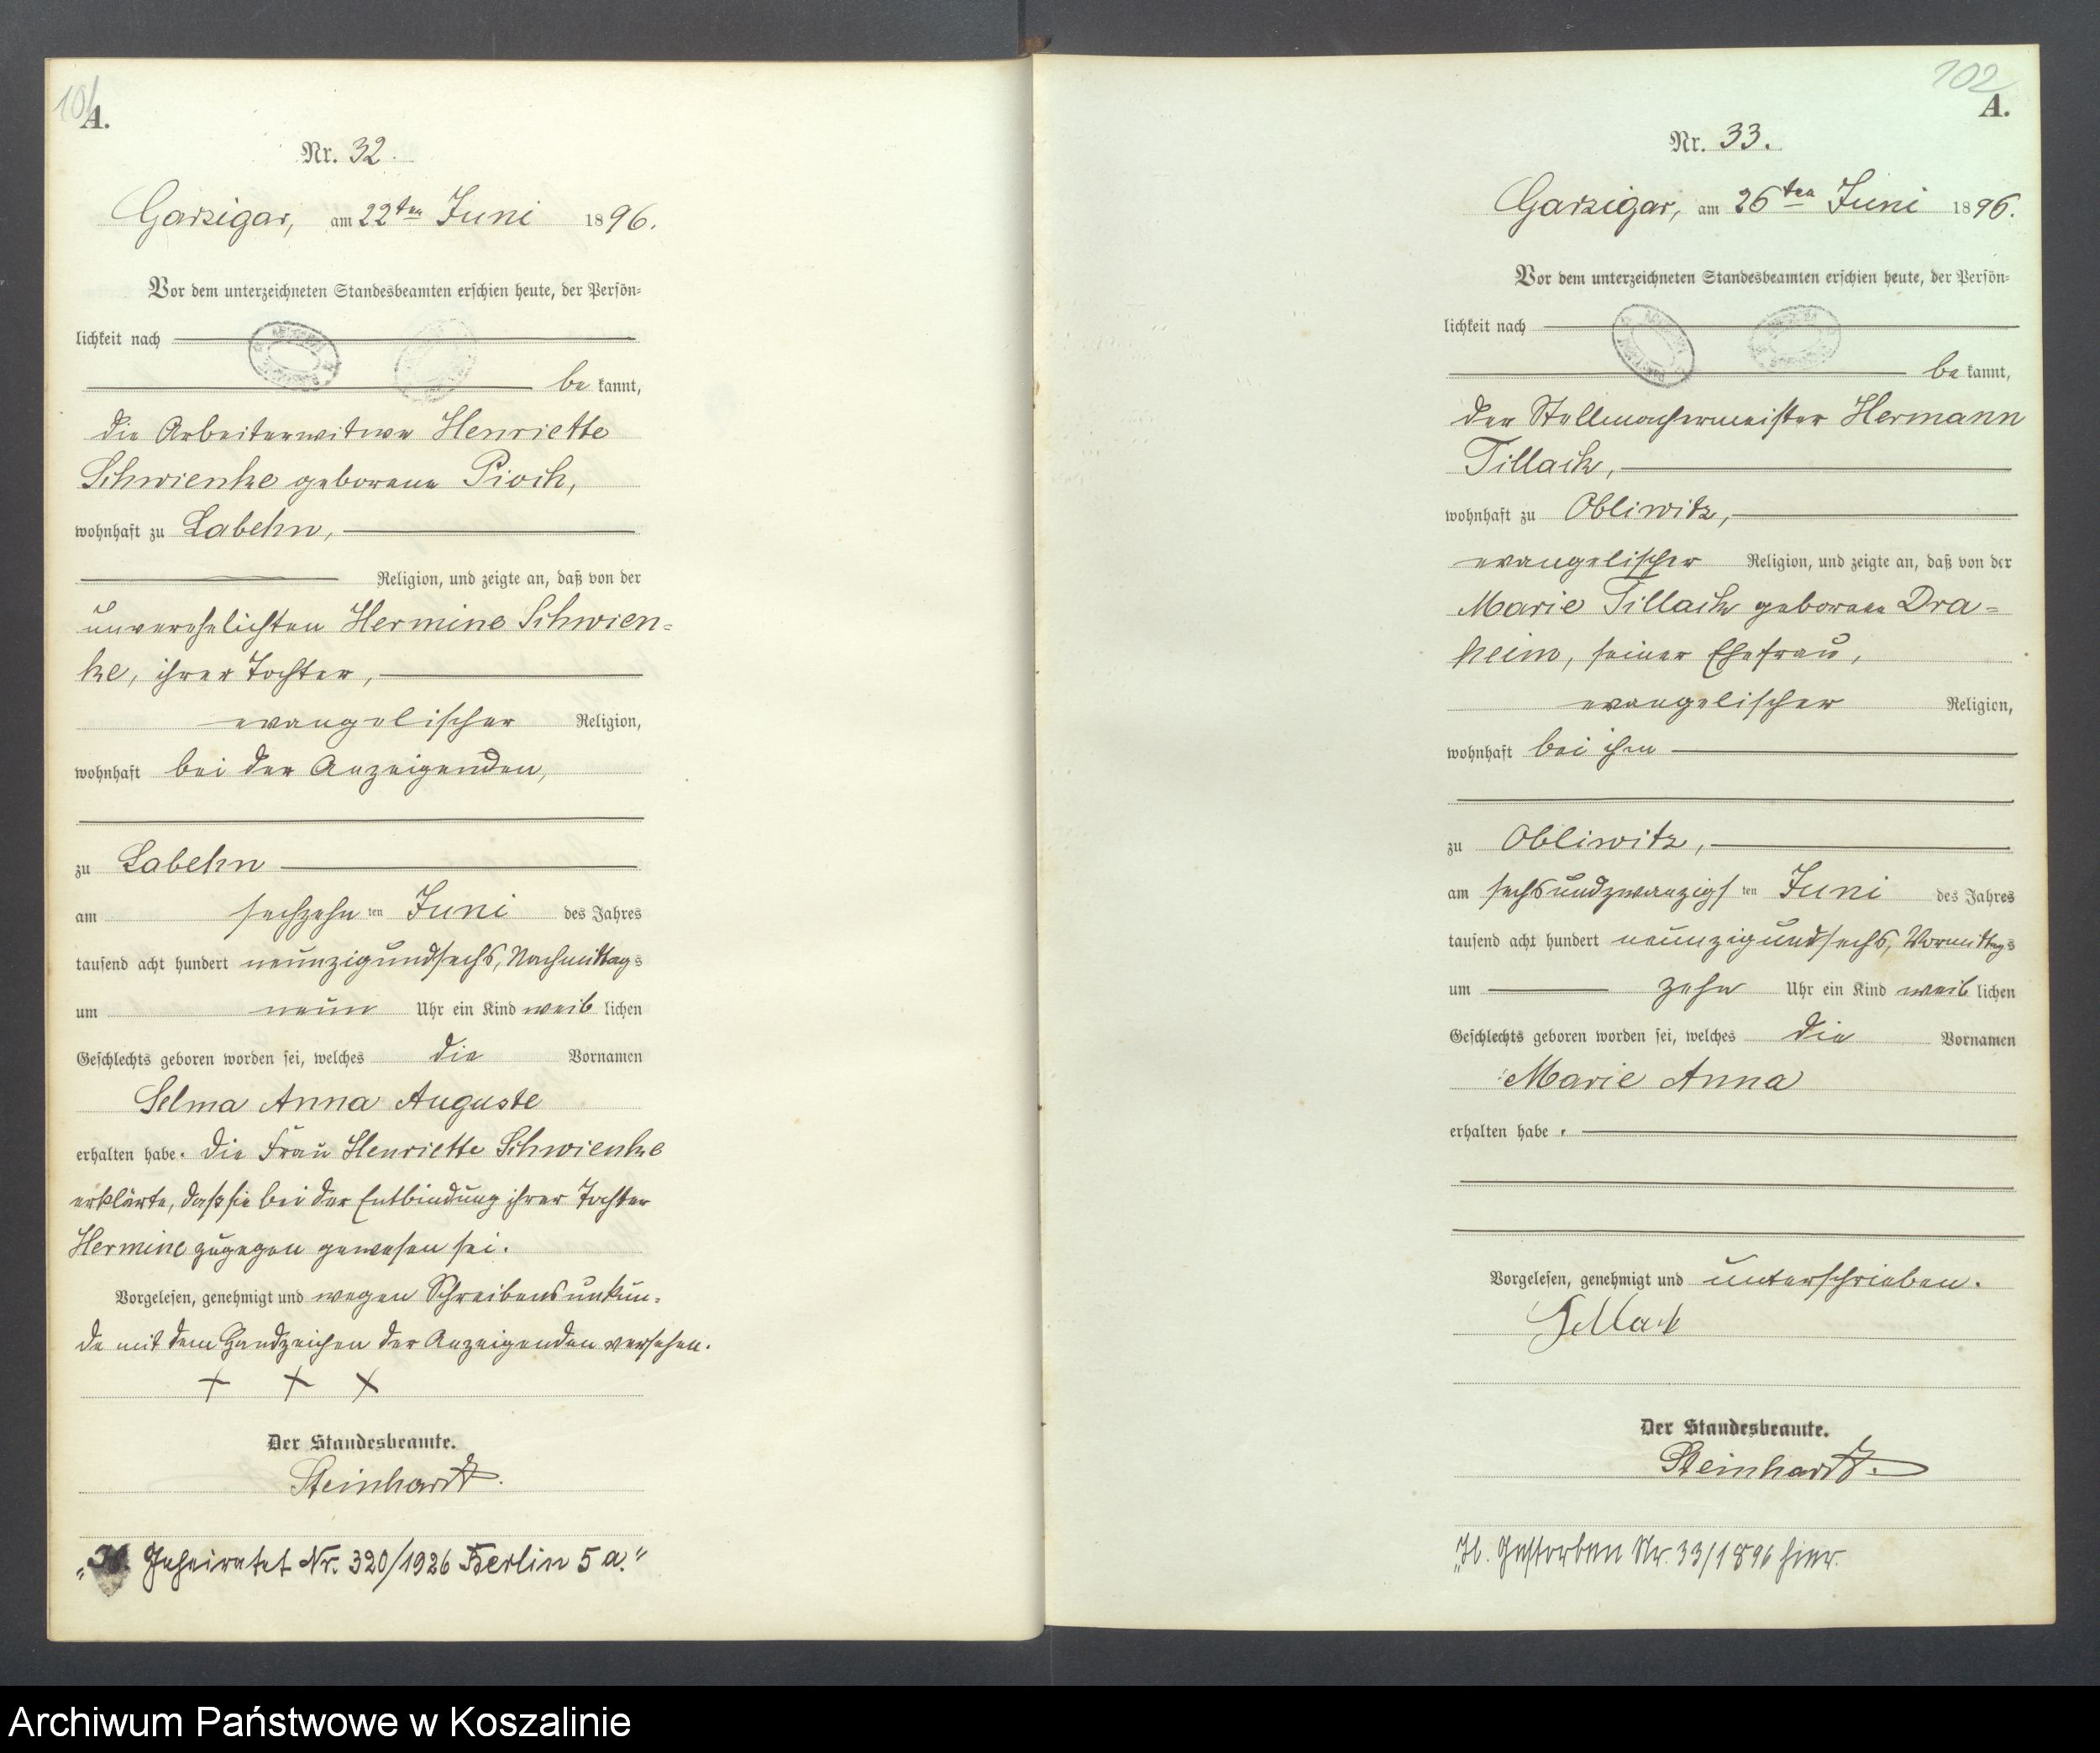 101
A.
Nr. 32.
Garzigar, am 22ten Juni 1896.
Vor dem unterzeichneten Standesbeamten erschien heute, der Persön-
lichkeit nach
be kannt,
die Arbeiterwitwe Henriette
Schwienke geborene Pioch,
wohnhaft zu Labehn,
Religion, und zeigte an, daß von der
unverehelichten Hermine Schwien-
ke, ihrer Tochter,
evangelischer Religion,
wohnhaft bei der Anzeigenden,
zu Labehn
am sechzehn ten Juni des Jahres
tausend acht hundert neunzigundsechs, Nachmittags
um neun Uhr ein Kind weib lichen
Geschlechts geboren worden sei, welches die Vornamen
Selma Anna Auguste
erhalten habe. Die Frau Henriette Schwienke
erklärte, daß sie bei der Entbindung ihrer Tochter
Hermine zugegen gewesen sei.
Vorgelesen, genehmigt und wegen Schreibensunkun-
de mit dem Handzeichen der Anzeigenden versehen.
+ + +
Der Standesbeamte.
Steinhardt.
Geheiratet Nr. 320/1926 Berlin 5a."
102
A.
Nr. 33.
Garzigar, am 26ten Juni 1896.
Vor dem unterzeichneten Standesbeamten erschien heute, der Persön-
lichkeit nach
be kannt,
der Stellmachermeister Hermann
Tillack,
wohnhaft zu Obliwitz,
evangelischer Religion, und zeigte an, daß von der
Marie Tillack geborene Dra-
heim, seiner Ehefrau,
evangelischer Religion,
wohnhaft bei ihm
zu Obliwitz,
am sechsundzwanzigs ten Juni des Jahres
tausend acht hundert neunzigundsechs, Vormittags
um zehn Uhr ein Kind weib lichen
Geschlechts geboren worden sei, welches die Vornamen
Marie Anna
erhalten habe.
Vorgelesen, genehmigt und unterschrieben.
Tillack
Der Standesbeamte.
Steinhardt.
„H. Gestorben Nr. 33/1896 hier.
Archiwum Państwowe w Koszalinie